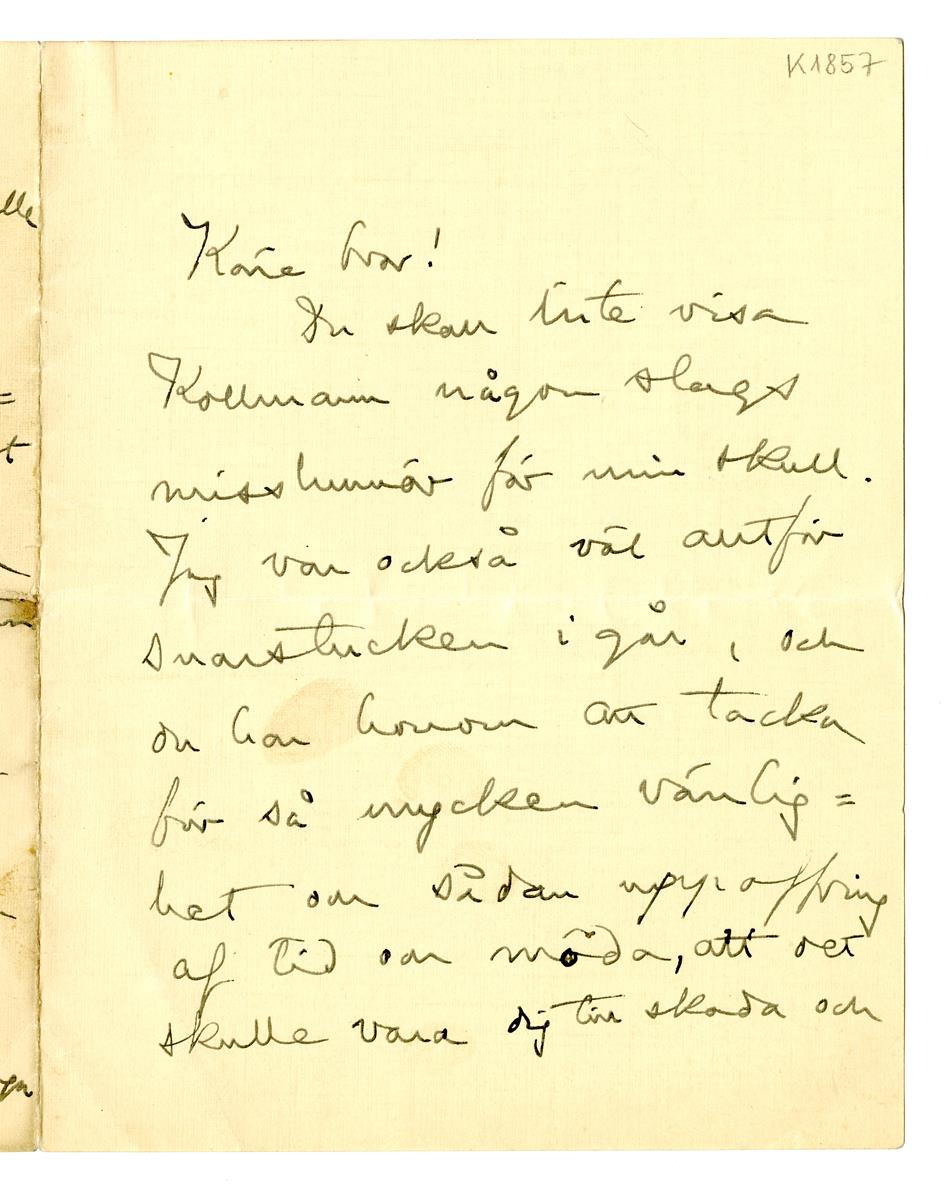 K1857
Käre bror!
Du skall inte visa
Kollmann någon slags
misshumör för min skull.
Jag var också väl alltför
snarstucken i går, och
du har honom att tacka
för så mycken vänlig=
het och sådan uppoffring
af tid och möda, att det
skulle vara dig till skada och